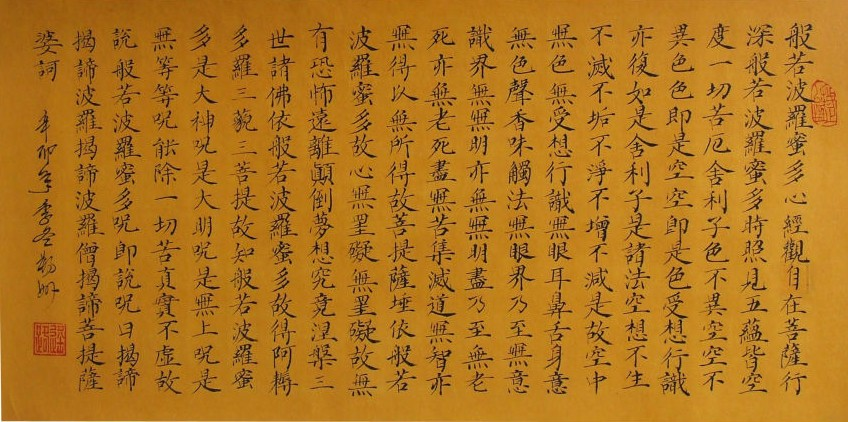 般若波羅蜜多心經觀自在菩薩行
深般若波羅蜜多時照見五蘊皆空
度一切苦厄舍利子色不異空空不
異色色即是空空即是色受想行識
亦復如是舍利子是諸法空想不生
不滅不垢不淨不增不減是故空中
無色無受想行識無眼耳鼻舌身意
無色聲香味觸法無眼界乃至無意
識界無無明亦無無明盡乃至無老
死亦無老死盡無苦集滅道無智亦
無得以無所得故菩提薩埵依般若
波羅蜜多故心無罣礙無罣礙故無
有恐怖遠離顛倒夢想究竟涅槃三
世諸佛依般若波羅蜜多故得阿耨
多羅三藐三菩提故知般若波羅蜜
多是大神呪是大明呪是無上呪是
無等等呪能除一切苦真實不虛故
說般若波羅蜜多呪即說呪曰揭諦
揭諦波羅揭諦波羅僧揭諦菩提薩
婆訶 辛卯年